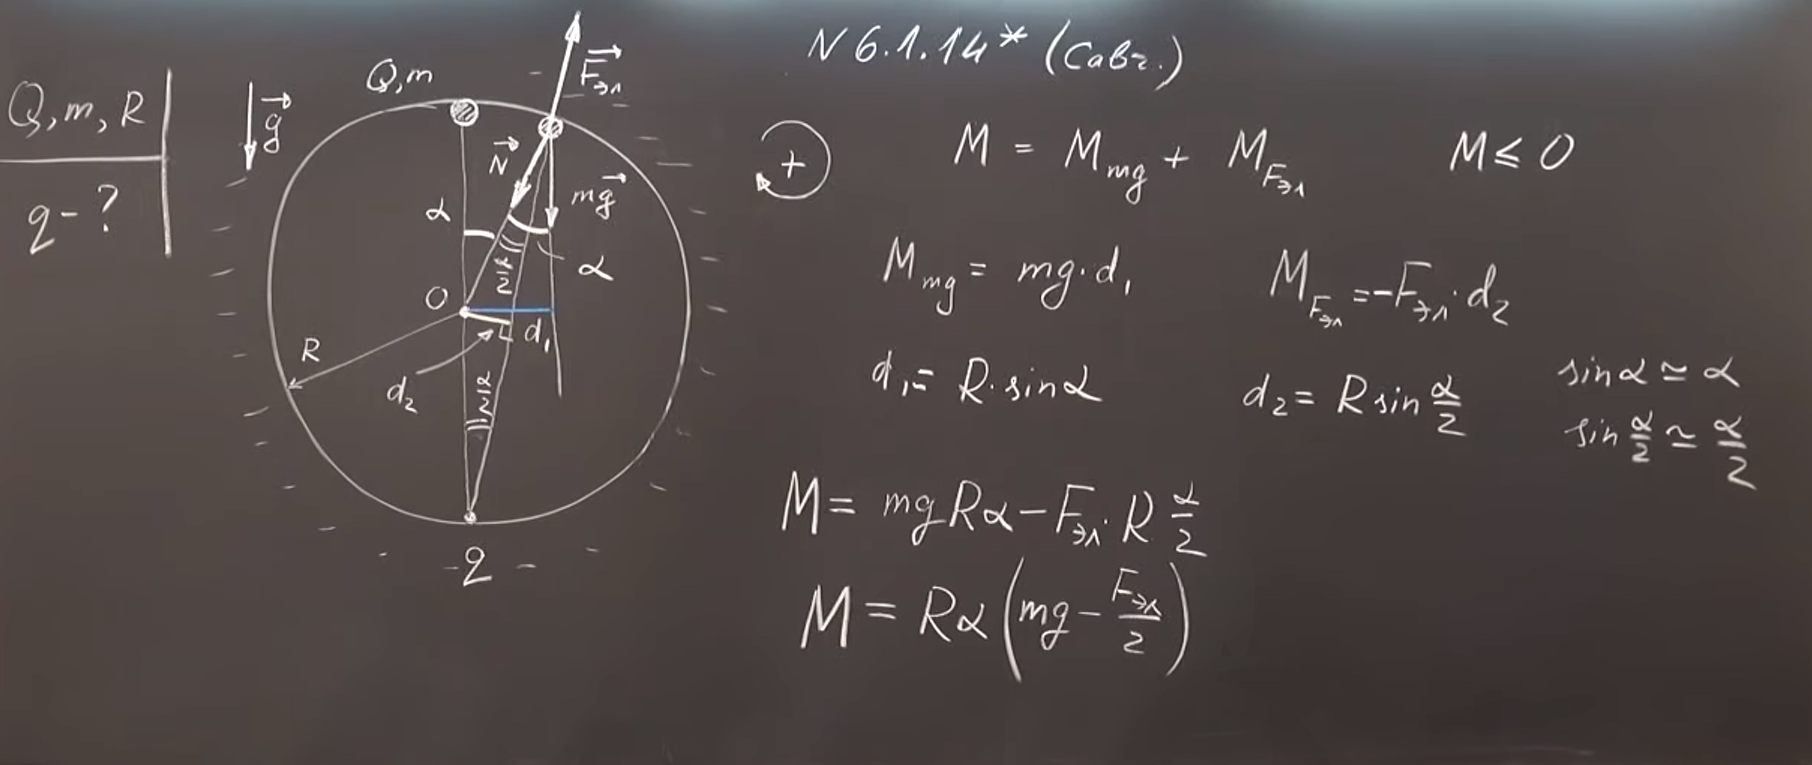 N 6.1.14* (Савч.)
Q, m, R
q - ?
g
Q, m
Fэл
N
mg
α
α
α/2
O
d₁
R
d₂
α/2
q
+
M = M_mg + M_Fэл M ≤ 0
M_mg = mg·d₁ M_Fэл = -Fэл·d₂
d₁ = R·sinα d₂ = R sin α/2
sinα ≃ α
sin α/2 ≃ α/2
M = mgRα - Fэл·R α/2
M = Rα(mg - Fэл/2)